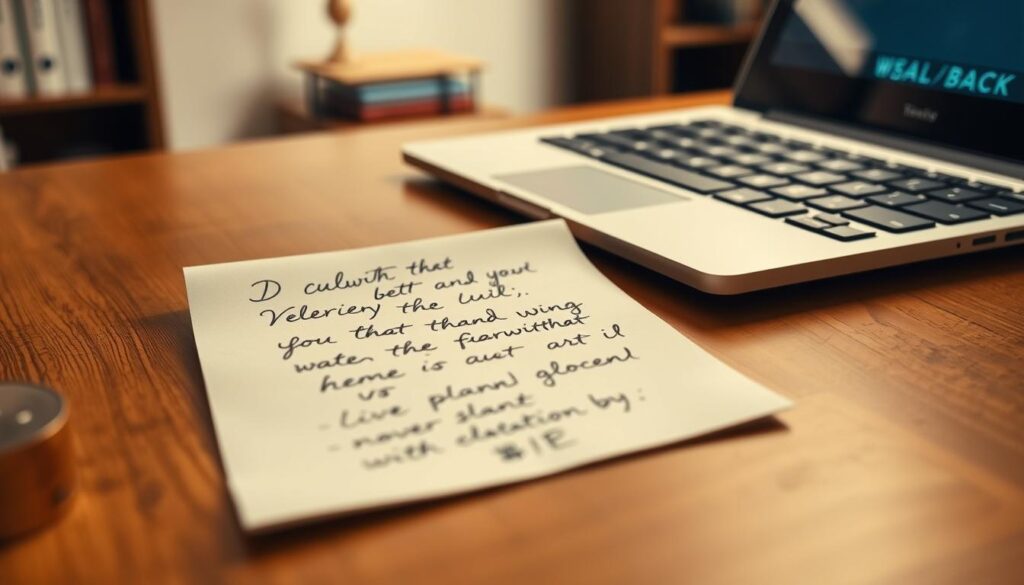 W5AL/BACK
D culwith that
bett and yout
Velerieny the luil;.
you that thand wing
water, the fiarwitthat
heme is aut art il
vs
- Live plannd glocenl
- nover slant
with elstation by: